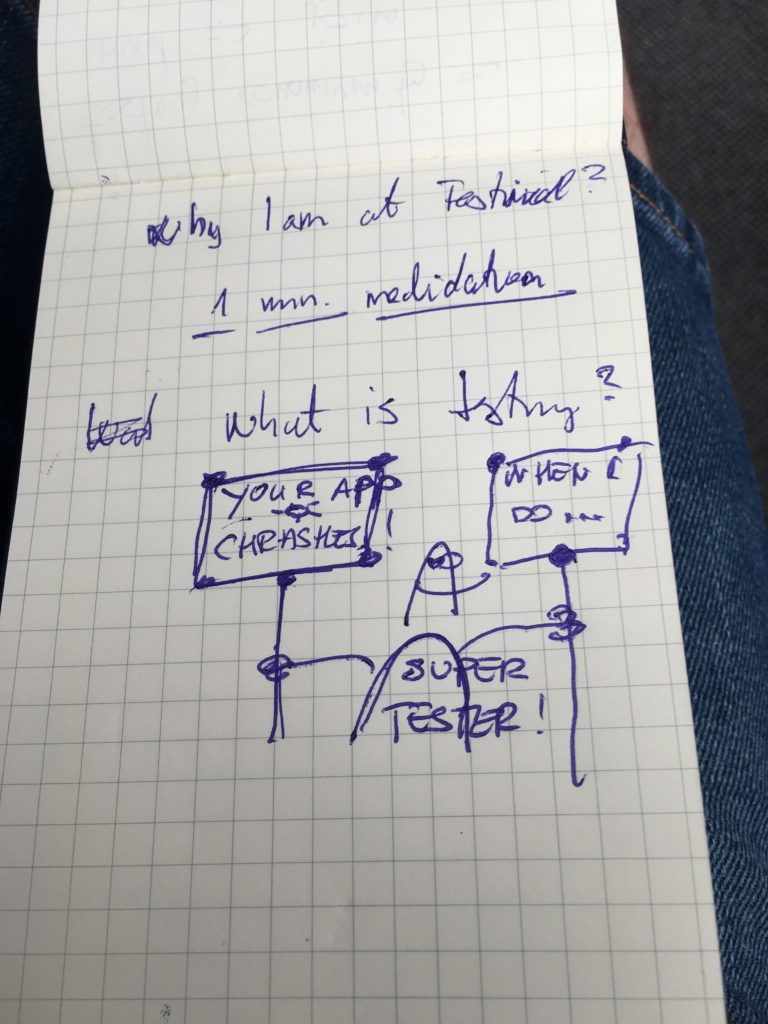 Why I am at Testival?
1 min. medidation
What is testing?
YOUR APP
CHRASHES!
WHEN I
DO ...
SUPER
TESTER!